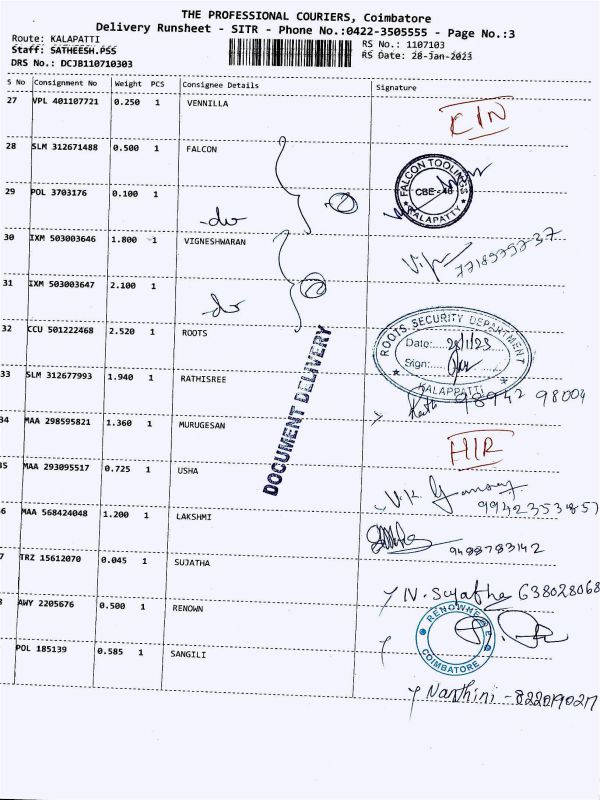 THE PROFESSIONAL COURIERS, Coimbatore
Delivery Runsheet - SITR - Phone No.:0422-3505555 - Page No.:3
Route: KALAPATTI
RS No.: 1107103
Staff: SATHEESH.PSS
RS Date: 28-Jan-2023
DRS No.: DCJB110710303
S No Consignment No Weight PCS Consignee Details Signature
27 VPL 401107721 0.250 1 VENNILLA
CIN
28 SLM 312671488 0.500 1 FALCON
FALCON TOOLINGS
CBE - 48
KALAPATTY
29 POL 3703176 0.100 1
-do
30 IXM 503003646 1.800 1 VIGNESHWARAN
31 IXM 503003647 2.100 1
-do
32 CCU 501222468 2.520 1 ROOTS
ROOTS SECURITY DEPARTMENT
Date: 28/1/23
Sign:
KALAPPATTI
DOCUMENT DELIVERY
33 SLM 312677993 1.940 1 RATHISREE
98942 98004
34 MAA 298595821 1.360 1 MURUGESAN
HIR
35 MAA 293095517 0.725 1 USHA
V.K.
6 MAA 568424048 1.200 1 LAKSHMI
9488783142
7 TRZ 15612070 0.045 1 SUJATHA
N. Sujatha 638028068
8 AWY 2205676 0.500 1 RENOWN
COIMBATORE
POL 185139 0.585 1 SANGILI
Nanthini - 822019027